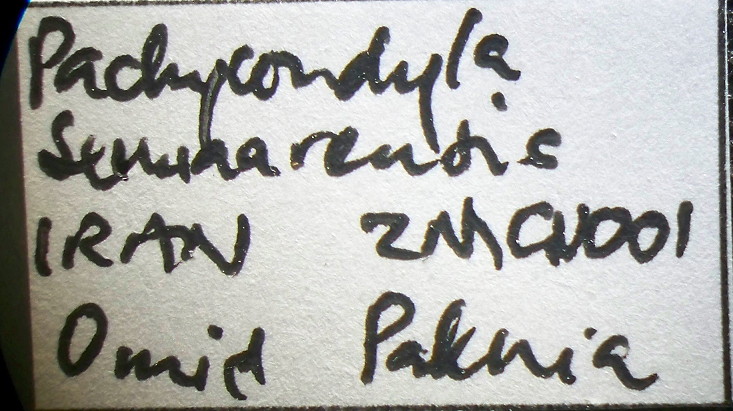 Pachycondyla
Sennaarensis
IRAN ZMCH001
Omid Paknia